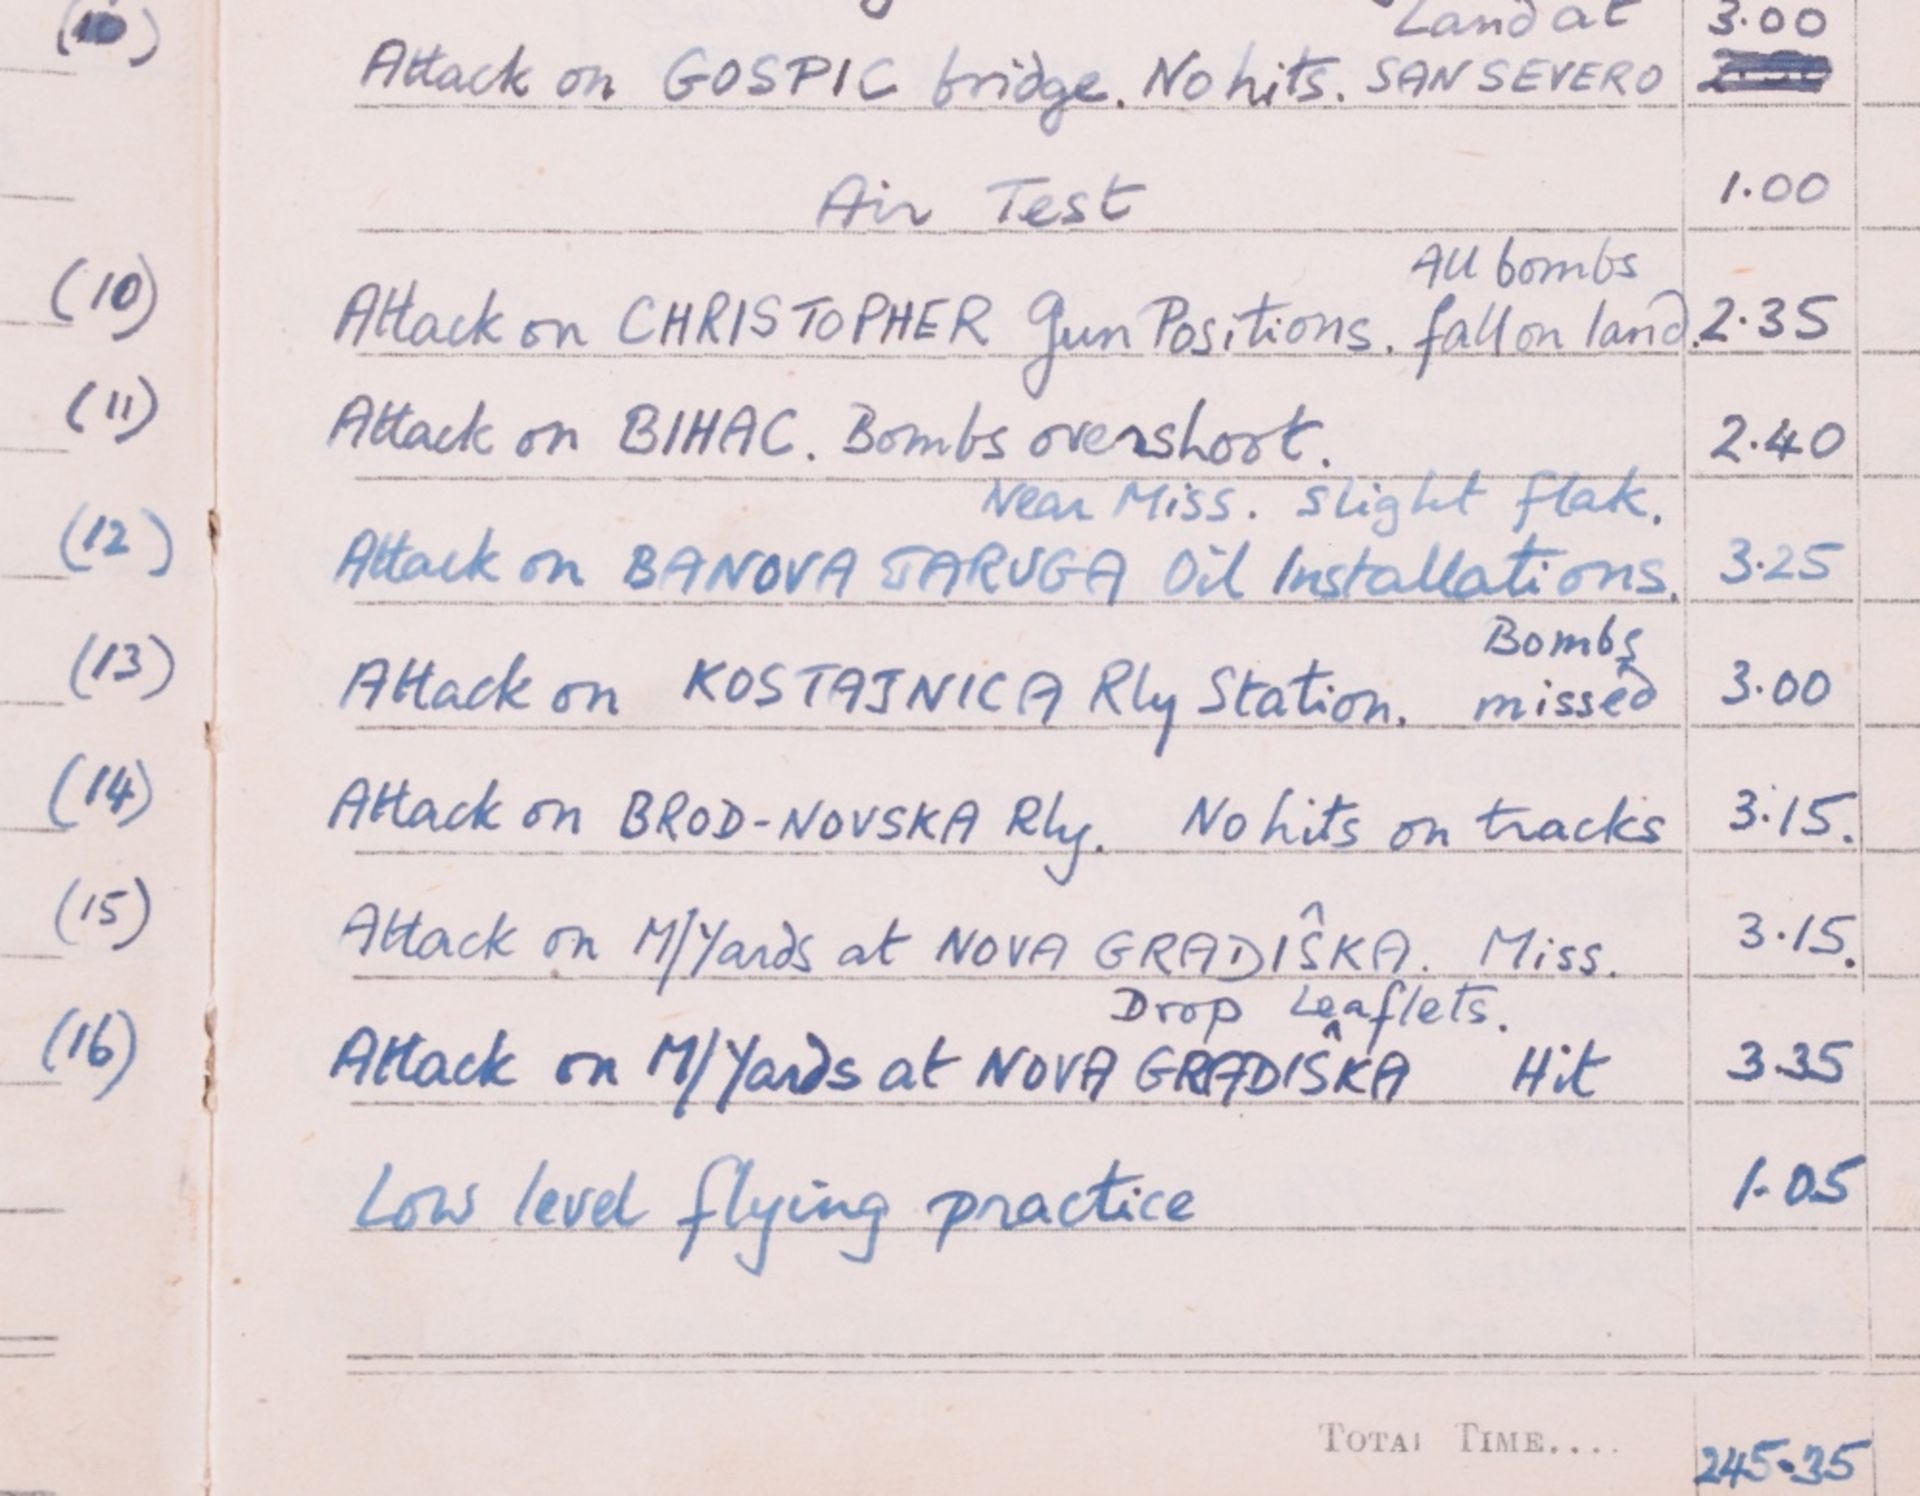 Land at 3.00
Attack on GOSPIC bridge. No hits. SAN SEVERO
Air Test 1.00
All bombs
(10) Attack on CHRISTOPHER Gun Positions. fall on land. 2.35
(11) Attack on BIHAC. Bombs overshoot. 2.40
Near Miss. slight flak.
(12) Attack on BANOVA JARUGA Oil Installations. 3.25
Bombs
(13) Attack on KOSTAJNICA Rly Station. missed 3.00
(14) Attack on BROD-NOVSKA Rly. No hits on tracks 3.15.
(15) Attack on M/Yards at NOVA GRADIŜKA. Miss. 3.15.
Drop Leaflets.
(16) Attack on M/Yards at NOVA GRADIŜKA Hit 3.35
Low level flying practice 1.05
TOTAL TIME.... 245.35